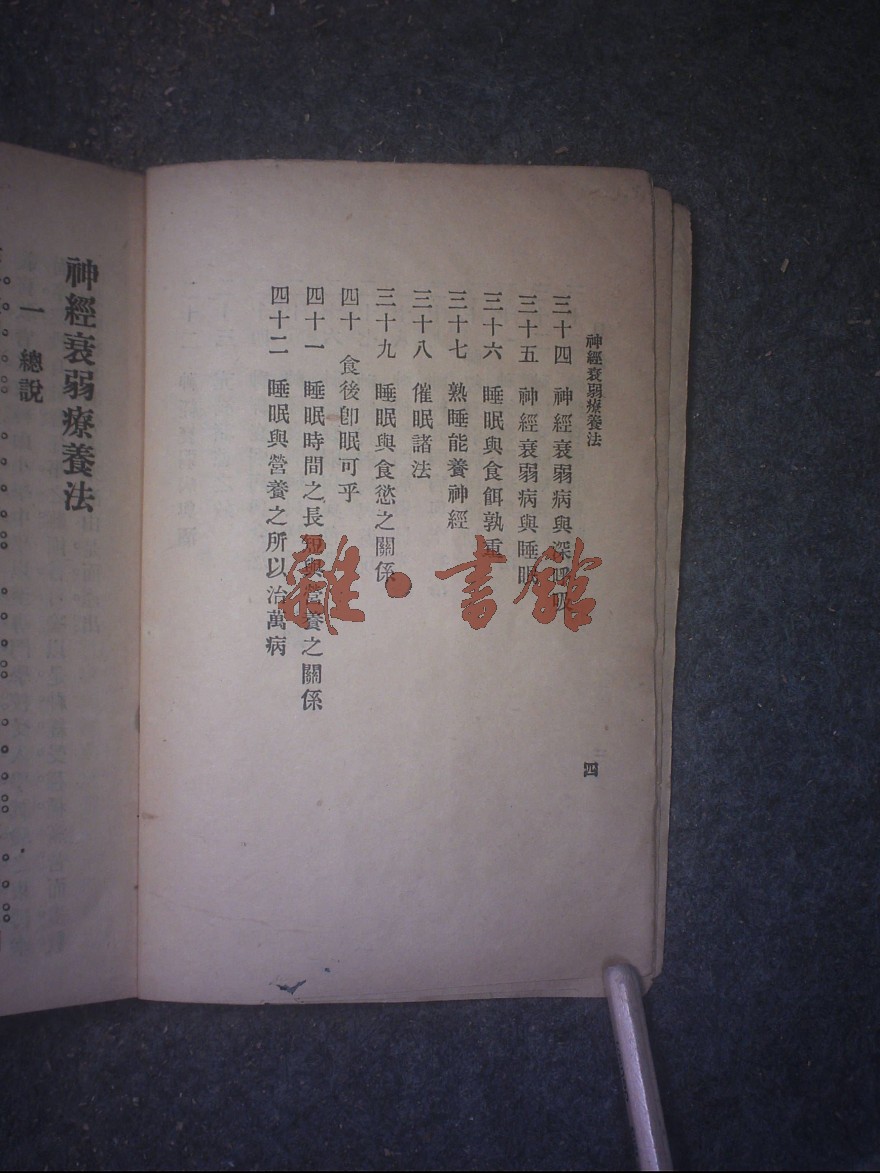 神經衰弱療養法
三十四　神經衰弱病與深呼吸
三十五　神經衰弱病與睡眠
三十六　睡眠與食餌孰重
三十七　熟睡能養神經
三十八　催眠諸法
三十九　睡眠與食慾之關係
四十　食後卽眠可乎
四十一　睡眠時間之長短與營養之關係
四十二　睡眠與營養之所以治萬病
四
神經衰弱療養法
一　總說
雜·書館